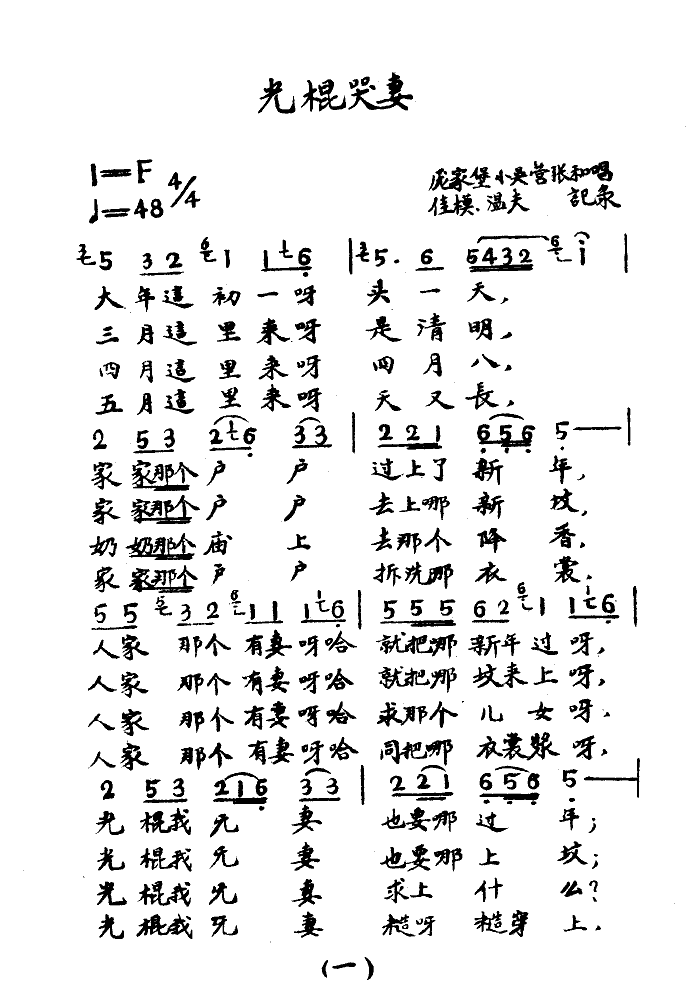 光棍哭妻
1=F 4/4
♩=48
庞家堡小吴营张和唱
佳模、温夫 記录
5 3 2 1 1 6 | 5. 6 5432 i |
大年這初一呀 头一天，
三月這里来呀 是清明，
四月這里来呀 四月八，
五月這里来呀 天又長，
2 53 2 6 33 | 221 656 5— |
家家那个户户 过上了新年，
家家那个户户 去上哪新坟，
奶奶那个庙上 去那个降香，
家家那个户户 拆洗那衣裳。
55 32 11 16 | 555 62 1 16 |
人家那个有妻呀哈 就把哪新年过呀，
人家那个有妻呀哈 就把那坟来上呀，
人家那个有妻呀哈 求那个儿女呀，
人家那个有妻呀哈 同把哪衣裳浆呀，
2 53 216 33 | 221 656 5— |
光棍我无妻 也要哪过年；
光棍我无妻 也要哪上坟；
光棍我无妻 求上什么？
光棍我无妻 糙呀糙穿上。
（一）